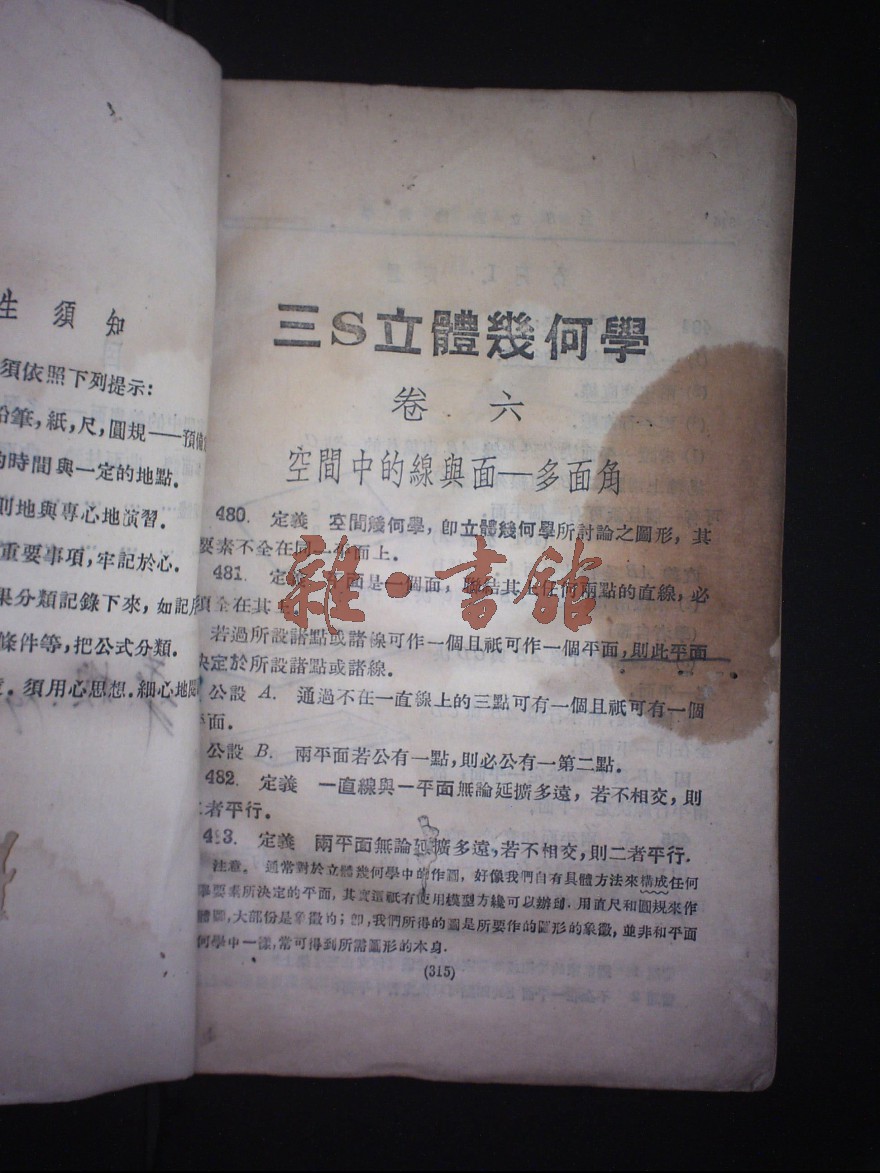 生須知
須依照下列提示：
鉛筆，紙，尺，圓規——預備
的時間與一定的地點．
則地與專心地演習．
重要事項，牢記於心．
果分類記錄下來，如記
條件等，把公式分類．
．須用心思想．細心地閱
三S立體幾何學
卷六
空間中的線與面—多面角
480. 定義 空間幾何學，卽立體幾何學所討論之圖形，其
要素不全在同一平面上．
481. 定義 平面是一個面，聯結其上任何兩點的直線，必
須全在其上．
若過所設諸點或諸線可作一個且祇可作一個平面，則此平面
決定於所設諸點或諸線．
公設 A. 通過不在一直線上的三點可有一個且祇可有一個
平面．
公設 B. 兩平面若公有一點，則必公有一第二點．
482. 定義 一直線與一平面無論延擴多遠，若不相交，則
二者平行．
483. 定義 兩平面無論延擴多遠，若不相交，則二者平行．
注意． 通常對於立體幾何學中的作圖，好像我們自有具體方法來構成任何
要素所決定的平面，其實這祇有使用模型方纔可以辦到．用直尺和圓規來作
體圖，大部份是象徵的；卽，我們所得的圖是所要作的圖形的象徵，並非和平面
何學中一樣，常可得到所需圖形的本身．
(315)
雜·書館